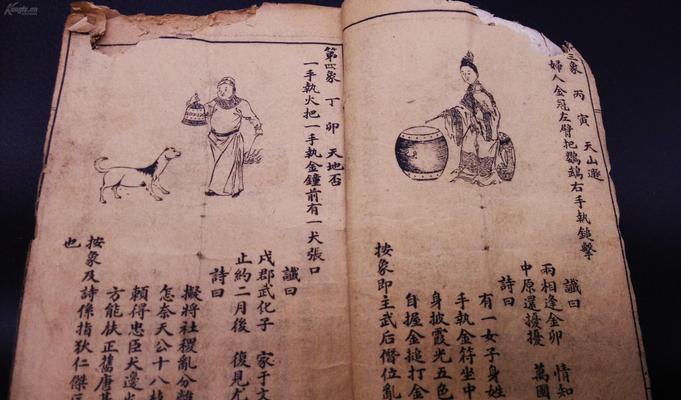 第三象 丙寅 天山遯
婦人金冠左臂把鸚鵡右手執鎚擊
讖曰
兩相逢金卯 情知
中原還擾擾 萬國
詩曰
有一女子身姓
手執金符坐中
身披霞光五色
自握金搥打金
按象即主武后僭位亂
第四象 丁卯 天地否
一手執火把一手執金鐘前有一犬張口
讖曰
戌郡武化子 家于文
止約二月後 復見
詩曰
擬將社稷亂分離
怎奈天公十八
賴得忠臣犬邊
方能扶正舊唐基
按象及詩係指狄仁傑
也
Kongfz.cn